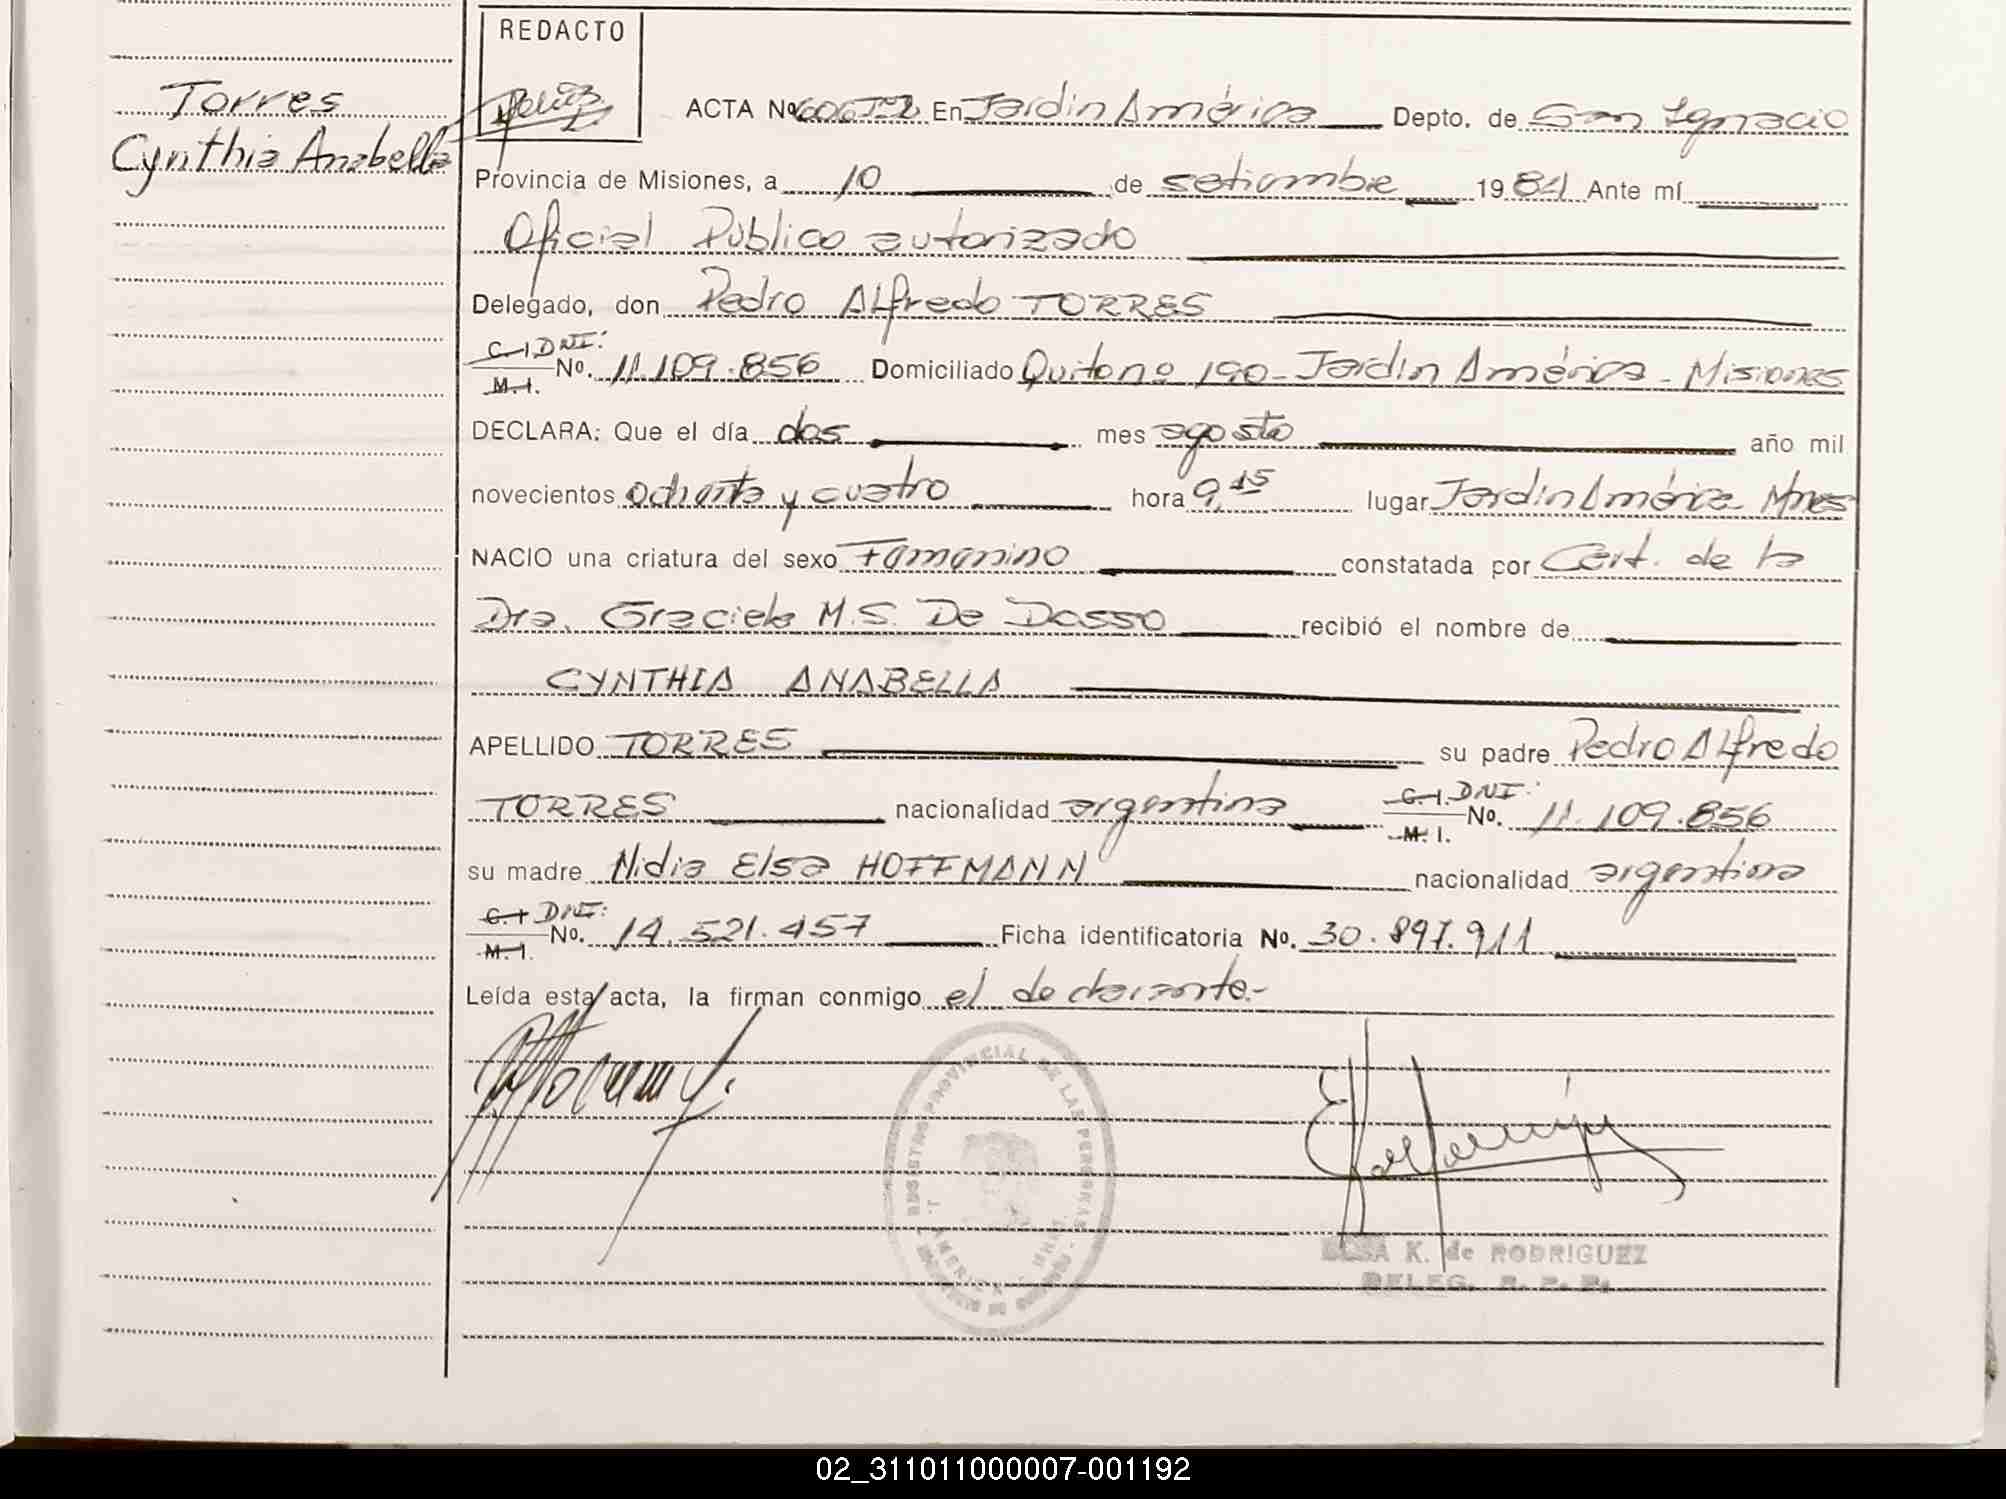 REDACTO
Torres
Cynthia Anabella
ACTA Nº En Jardin América Depto. de San Ignacio
Provincia de Misiones, a 10 de setiembre 1984 Ante mí
Oficial Público autorizado
Delegado, don Pedro Alfredo TORRES
C.I. DNI:
M.I. No. 11.109.856 Domiciliado Quitono 190 - Jardin América - Misiones
DECLARA: Que el día dos mes agosto año mil
novecientos ochenta y cuatro hora 9,15 lugar Jardin América Mnes
NACIO una criatura del sexo Femenino constatada por Cert. de la
Dra. Graciela M.S. De Dasso recibió el nombre de
CYNTHIA ANABELLA
APELLIDO TORRES su padre Pedro Alfredo
TORRES nacionalidad argentina C.I. DNI: M.I. No. 11.109.856
su madre Nidia Elsa HOFFMANN nacionalidad argentina
C.I DNI:
M.I. No. 14.521.457 Ficha identificatoria No. 30.897.911
Leída esta acta, la firman conmigo el declarante.-
REGISTRO PROVINCIAL DE LAS PERSONAS
AMERICA
ELSA K. de RODRIGUEZ
DELEG. R. P. P.
02_311011000007-001192